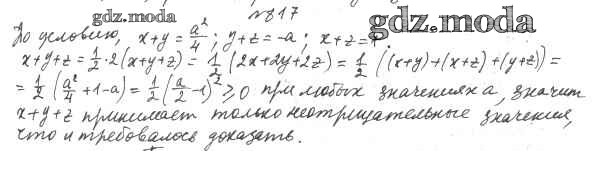 gdz.moda
№817
gdz.moda
По условию, x+y = a²/4; y+z = -a; x+z = 1
x+y+z = 1/2 · 2(x+y+z) = 1/2 (2x+2y+2z) = 1/2 ((x+y)+(x+z)+(y+z)) =
= 1/2 (a²/4 + 1 - a) = 1/2 (a/2 - 1)² ≥ 0 при любых значениях a, значит
x+y+z принимает только неотрицательные значения,
что и требовалось доказать.